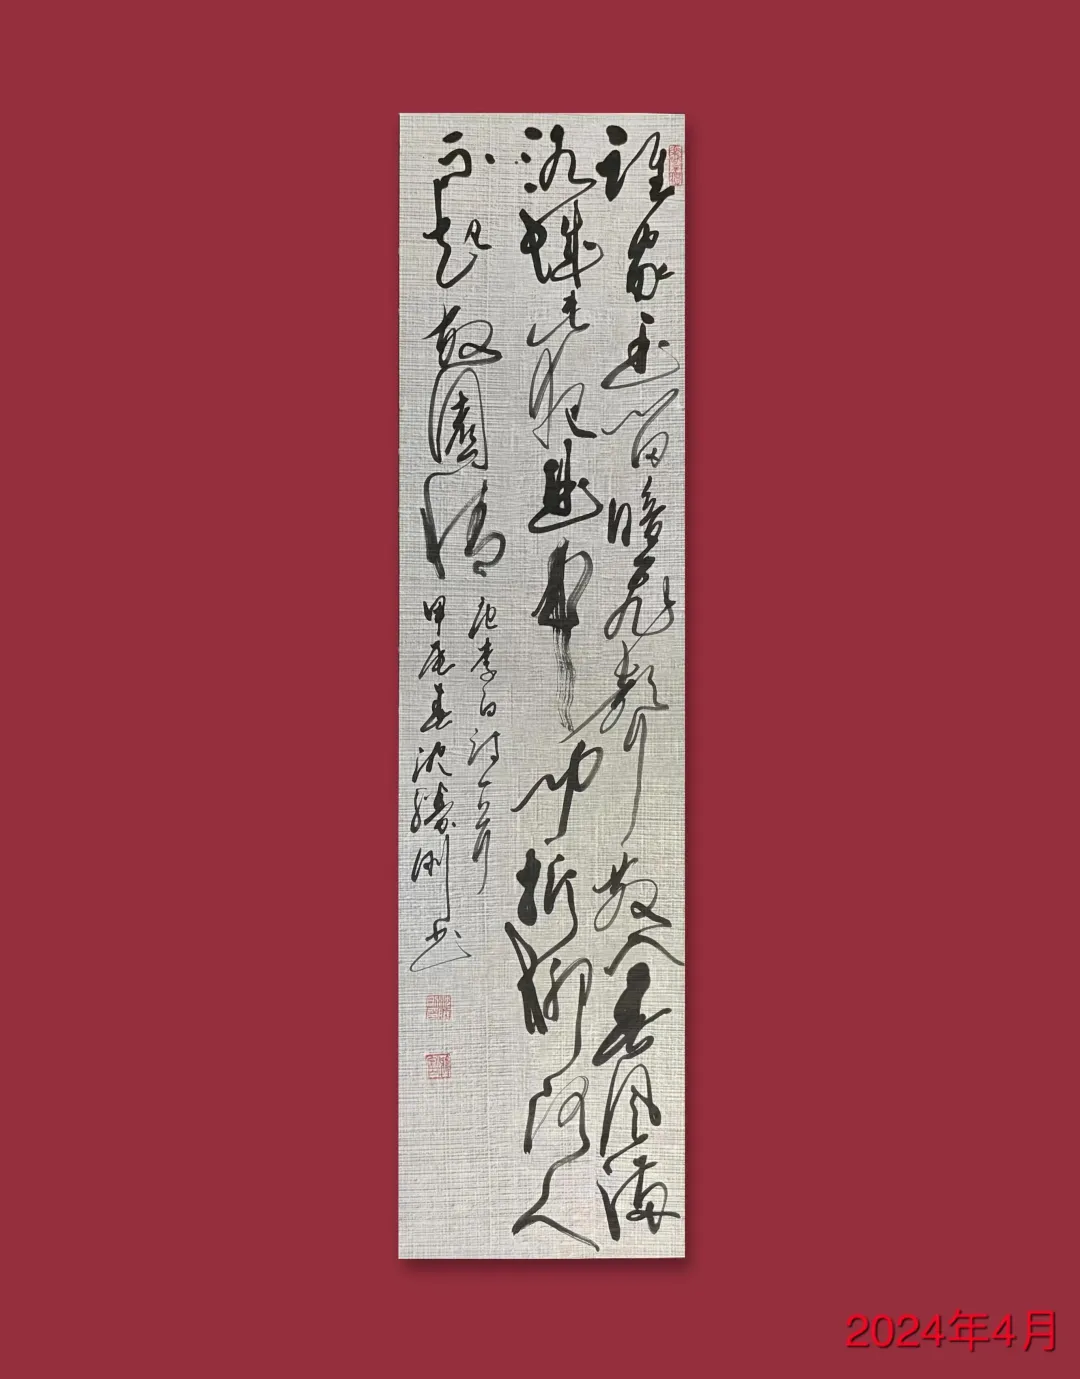 誰家玉笛暗飛聲散入春風滿
洛城此夜曲中聞折柳何人
不起故園情
唐李白詩一首
甲辰春沈剛书
2024年4月